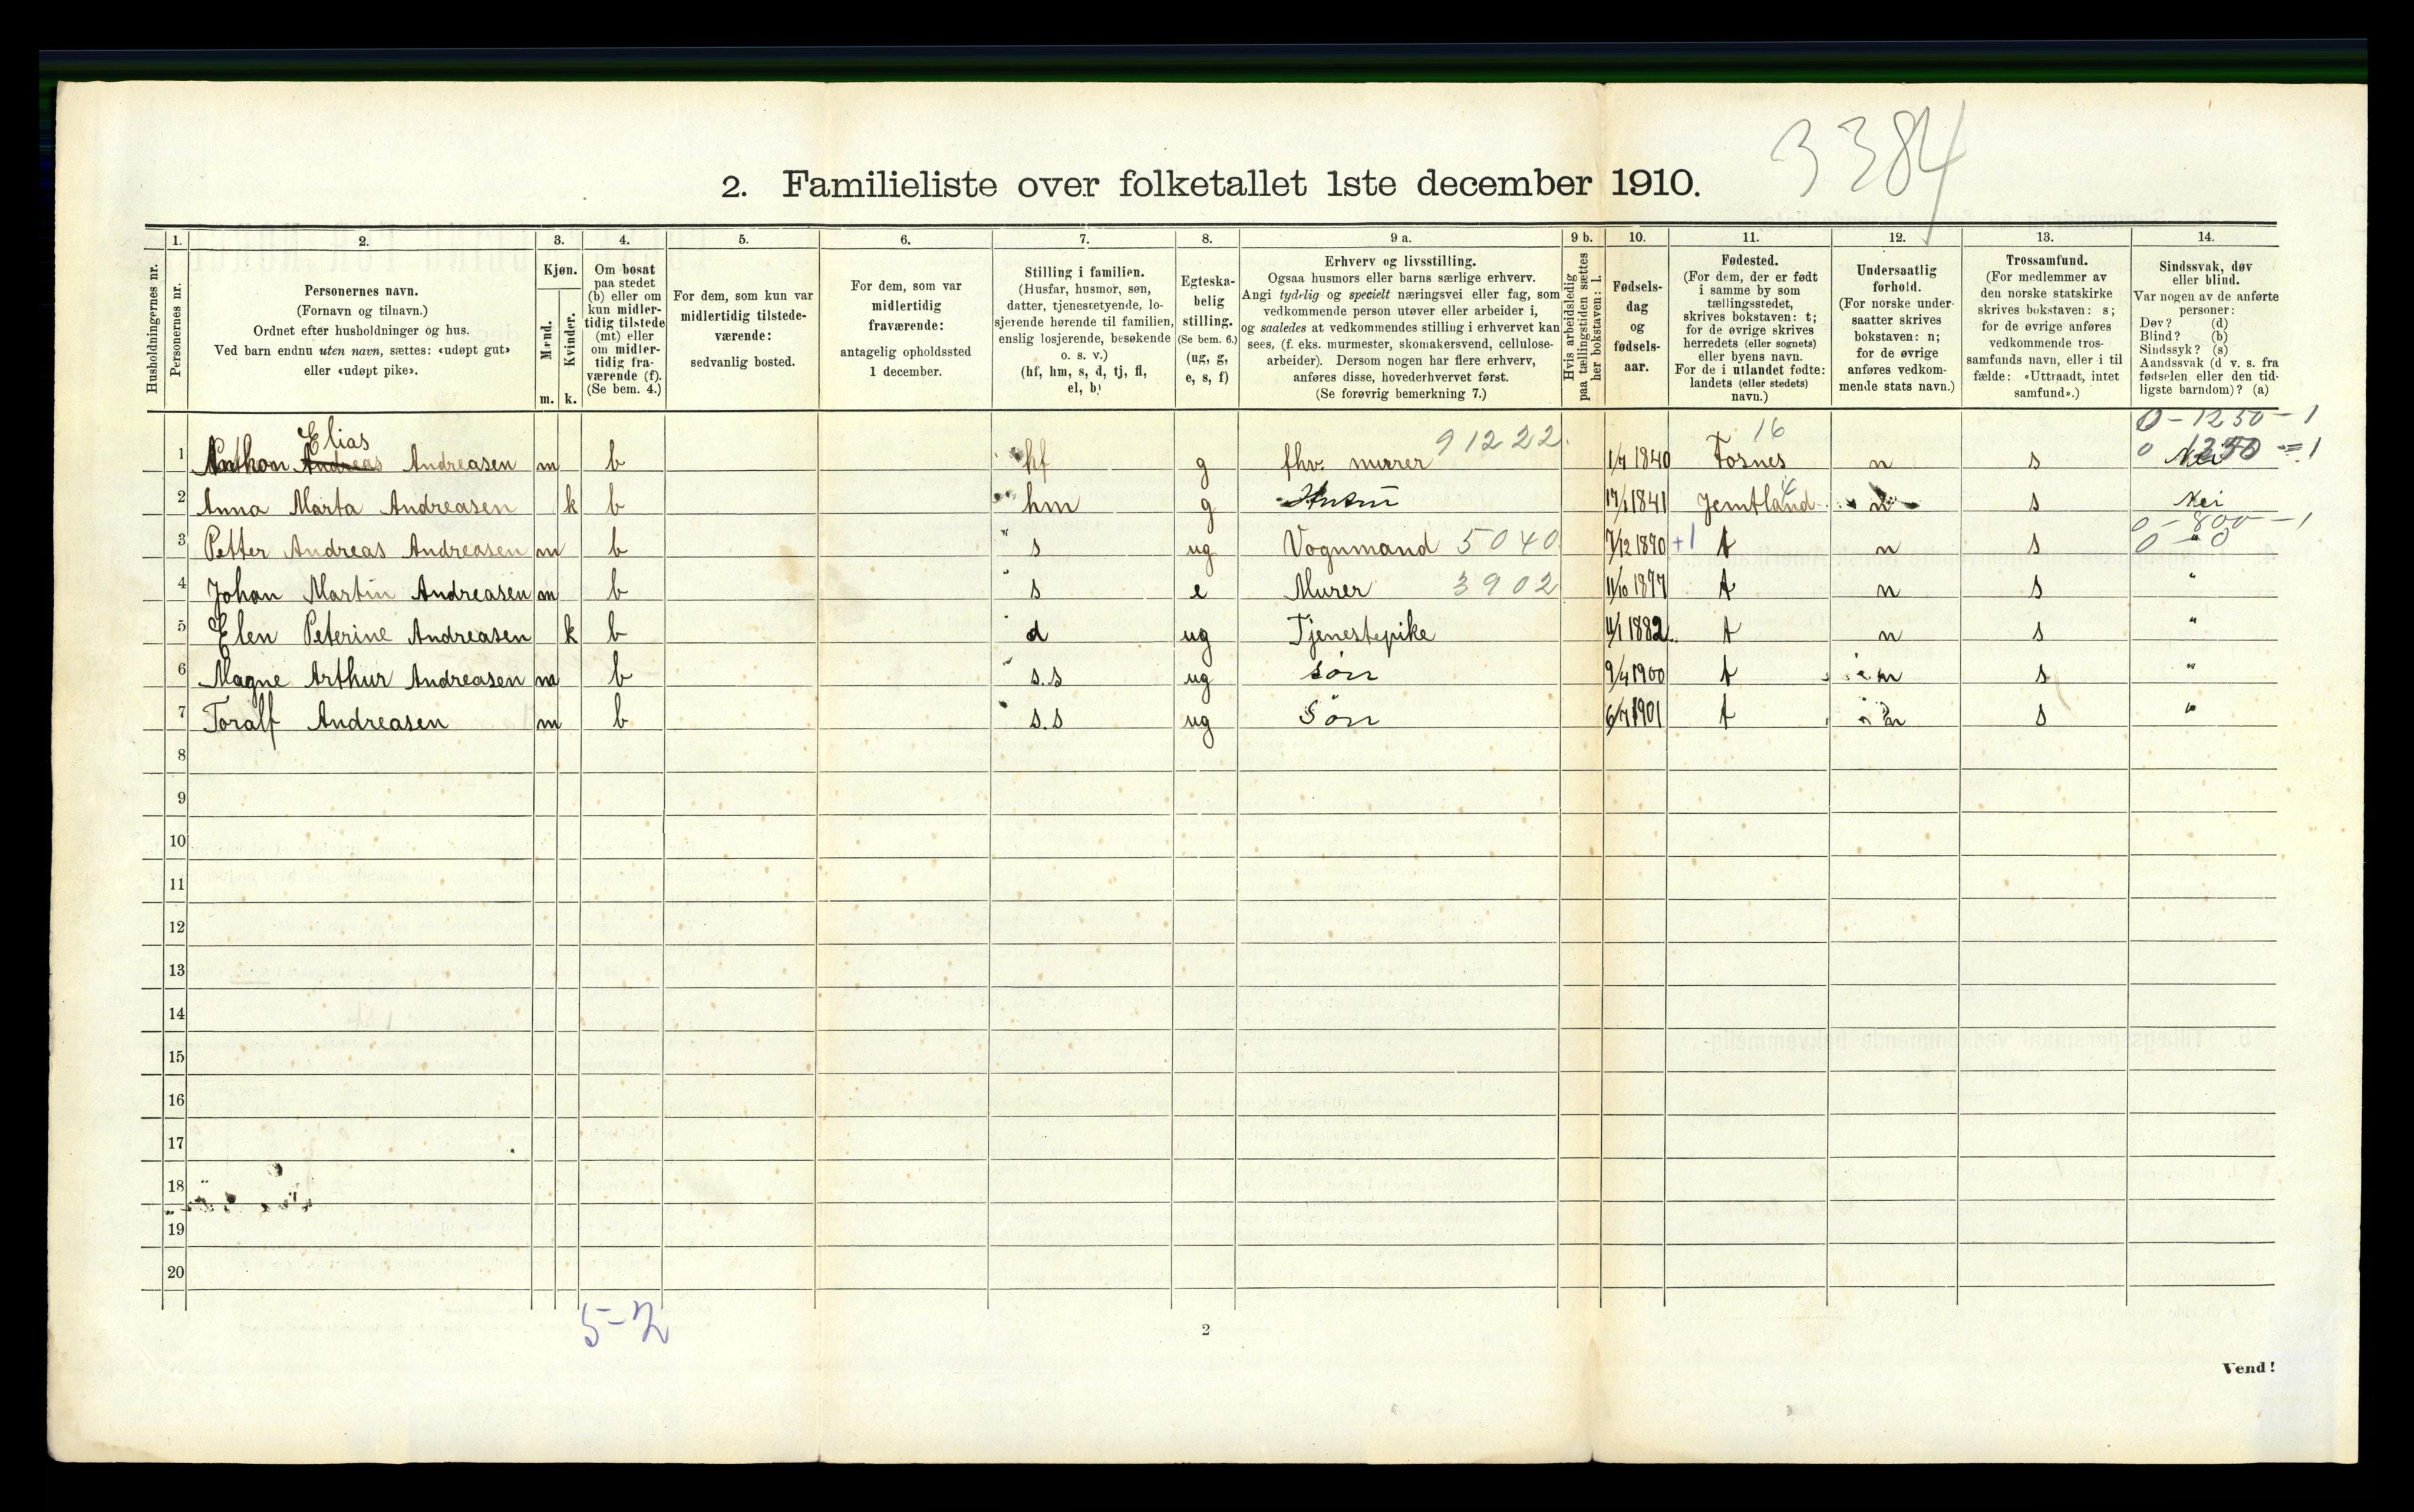 3384
2. Familieliste over folketallet 1ste december 1910.
1. 2. 3. 4. 5. 6. 7. 8. 9 a. 9 b. 10. 11. 12. 13. 14.
Husholdningernes nr.
Personernes nr.
Personernes navn.
(Fornavn og tilnavn.)
Ordnet efter husholdninger og hus.
Ved barn endnu uten navn, sættes: «udøpt gut»
eller «udøpt pike».
Kjøn.
Mænd.
Kvinder.
m. k.
Om bosat
paa stedet
(b) eller om
kun midler-
tidig tilstede
(mt) eller
om midler-
tidig fra-
værende (f).
(Se bem. 4.)
For dem, som kun var
midlertidig tilstede-
værende:
sedvanlig bosted.
For dem, som var
midlertidig
fraværende:
antagelig opholdssted
1 december.
Stilling i familien.
(Husfar, husmor, søn,
datter, tjenestetyende, lo-
sjerende hørende til familien,
enslig losjerende, besøkende
o. s. v.)
(hf, hm, s, d, tj, fl,
el, b)
Egteska-
belig
stilling.
(Se bem. 6.)
(ug, g,
e, s, f)
Erhverv og livsstilling.
Ogsaa husmors eller barns særlige erhverv.
Angi tydelig og specielt næringsvei eller fag, som
vedkommende person utøver eller arbeider i,
og saaledes at vedkommendes stilling i erhvervet kan
sees, (f. eks. murmester, skomakersvend, cellulose-
arbeider). Dersom nogen har flere erhverv,
anføres disse, hovederhvervet først.
(Se forøvrig bemerkning 7.)
Hvis arbeidsledig
paa tællingstiden sættes
her bokstaven: l.
Fødsels-
dag
og
fødsels-
aar.
Fødested.
(For dem, der er født
i samme by som
tællingsstedet,
skrives bokstaven: t;
for de øvrige skrives
herredets (eller sognets)
eller byens navn.
For de i utlandet fødte:
landets (eller stedets)
navn.)
Undersaatlig
forhold.
(For norske under-
saatter skrives
bokstaven: n;
for de øvrige
anføres vedkom-
mende stats navn.)
Trossamfund.
(For medlemmer av
den norske statskirke
skrives bokstaven: s;
for de øvrige anføres
vedkommende tros-
samfunds navn, eller i til
fælde: «Uttraadt, intet
samfund».)
Sindssvak, døv
eller blind.
Var nogen av de anførte
personer:
Døv? (d)
Blind? (b)
Sindssyk? (s)
Aandssvak (d v. s. fra
fødselen eller den tid-
ligste barndom)? (a)
0-1250-1
Elias 91222. 16 0 1250 = 1
1 Anthon Andreas Andreasen m b hf g fhv. murer 1/7 1840 Fosnes n s Nei
2 Anna Marta Andreasen k b hm g 17/1 1841 Jemtland 4 n s Nei
0-800-1
3 Petter Andreas Andreasen m b s ug Vognmand 5040 7/12 1870 +1 t n s 0-0
4 Johan Martin Andreasen m b s e Murer 3902 11/10 1877 t n s "
5 Elen Peterine Andreasen k b d ug Tjenestepike 4/1 1882 t n s "
6 Magne Arthur Andreasen m b s.s ug søn 9/4 1900 t n s "
7 Toralf Andreasen m b s.s ug Søn 6/7 1901 t n s "
8
9
10
11
12
13
14
15
16
17
18
19
20
5-2
2
Vend!